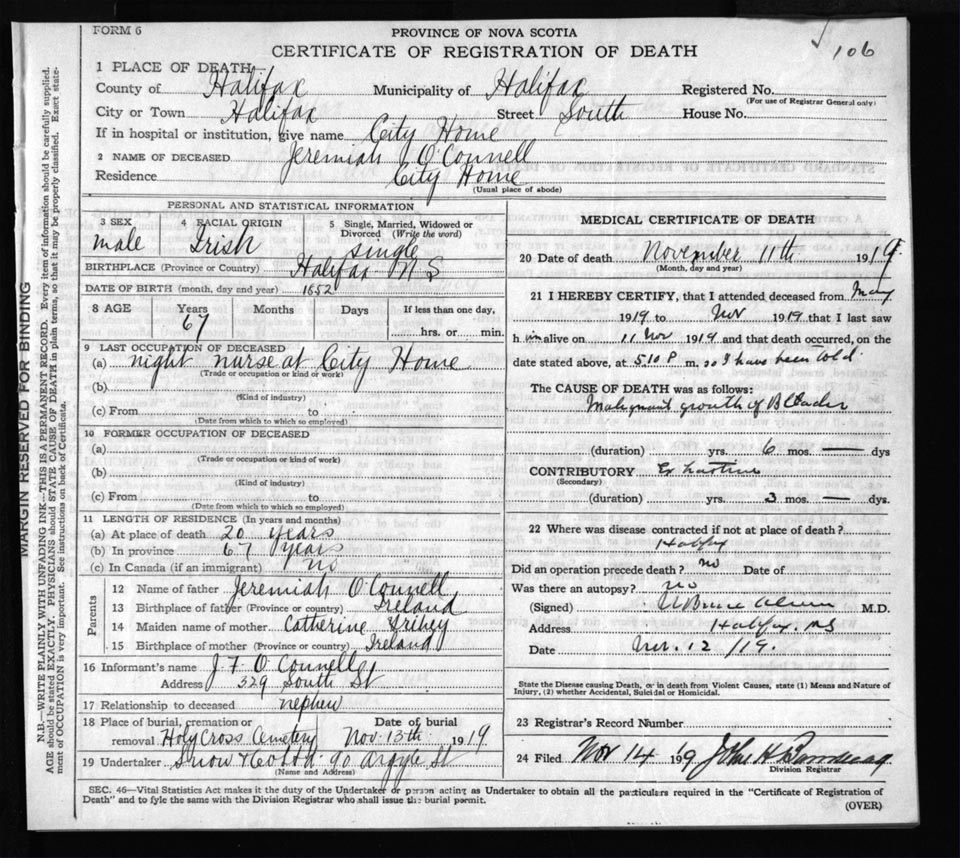 FORM 6
106
PROVINCE OF NOVA SCOTIA
CERTIFICATE OF REGISTRATION OF DEATH
MARGIN RESERVED FOR BINDING
N.B.—WRITE PLAINLY WITH UNFADING INK—THIS IS A PERMANENT RECORD. Every item of information should be carefully supplied.
AGE should be stated EXACTLY. PHYSICIANS should STATE CAUSE OF DEATH in plain terms, so that it may be properly classified. Exact state-
ment of OCCUPATION is very important. See instructions on back of Certificate.
1 PLACE OF DEATH—
County of Halifax Municipality of Halifax Registered No.
(For use of Registrar General only)
City or Town Halifax Street South House No.
If in hospital or institution, give name City Home
2 NAME OF DECEASED Jeremiah O'Connell
Residence City Home
(Usual place of abode)
PERSONAL AND STATISTICAL INFORMATION
3 SEX male
4 RACIAL ORIGIN Irish
5 Single, Married, Widowed or Divorced (Write the word) single
BIRTHPLACE (Province or Country) Halifax N S
DATE OF BIRTH (month, day and year) 1852
8 AGE Years 67 Months Days If less than one day,
hrs. or min.
9 LAST OCCUPATION OF DECEASED
(a) night nurse at City Home
(Trade or occupation or kind of work)
(b)
(Kind of industry)
(c) From to
(Date from which to which so employed)
10 FORMER OCCUPATION OF DECEASED
(a)
(Trade or occupation or kind of work)
(b)
(Kind of industry)
(c) From to
(Date from which to which so employed)
11 LENGTH OF RESIDENCE (In years and months)
(a) At place of death 20 years
(b) In province 67 years
(c) In Canada (if an immigrant) no
Parents
12 Name of father Jeremiah O'Connell
13 Birthplace of father (Province or country) Ireland
14 Maiden name of mother Catherine
15 Birthplace of mother (Province or country) Ireland
16 Informant's name J. F. O'Connell
Address 329 South St
17 Relationship to deceased nephew
18 Place of burial, cremation or removal Holy Cross Cemetery
Date of burial Nov. 13th 1919
19 Undertaker Snow & Co Ltd. 90 Argyle St
(Name and Address)
MEDICAL CERTIFICATE OF DEATH
20 Date of death November 11th 1919
(Month, day and year)
21 I HEREBY CERTIFY, that I attended deceased from May
1919 to Nov 1919 that I last saw
h im alive on 11 Nov 1919 and that death occurred, on the
date stated above, at 5.10 P m, so I have been told.
The CAUSE OF DEATH was as follows:
Malignant growth of Bladder
(duration) yrs. 6 mos. — dys
CONTRIBUTORY Exhaustion
(Secondary)
(duration) yrs. 3 mos. — dys.
22 Where was disease contracted if not at place of death?
Halifax
Did an operation precede death? no Date of
Was there an autopsy? no
(Signed) M.D.
Address Halifax. NS
Date Nov. 12 /19.
State the Disease causing Death, or in death from Violent Causes, state (1) Means and Nature of
Injury, (2) whether Accidental, Suicidal or Homicidal.
23 Registrar's Record Number
24 Filed Nov 14 1919 John H
Division Registrar
SEC. 46—Vital Statistics Act makes it the duty of the Undertaker or person acting as Undertaker to obtain all the particulars required in the "Certificate of Registration of
Death" and to fyle the same with the Division Registrar who shall issue the burial permit.
(OVER)